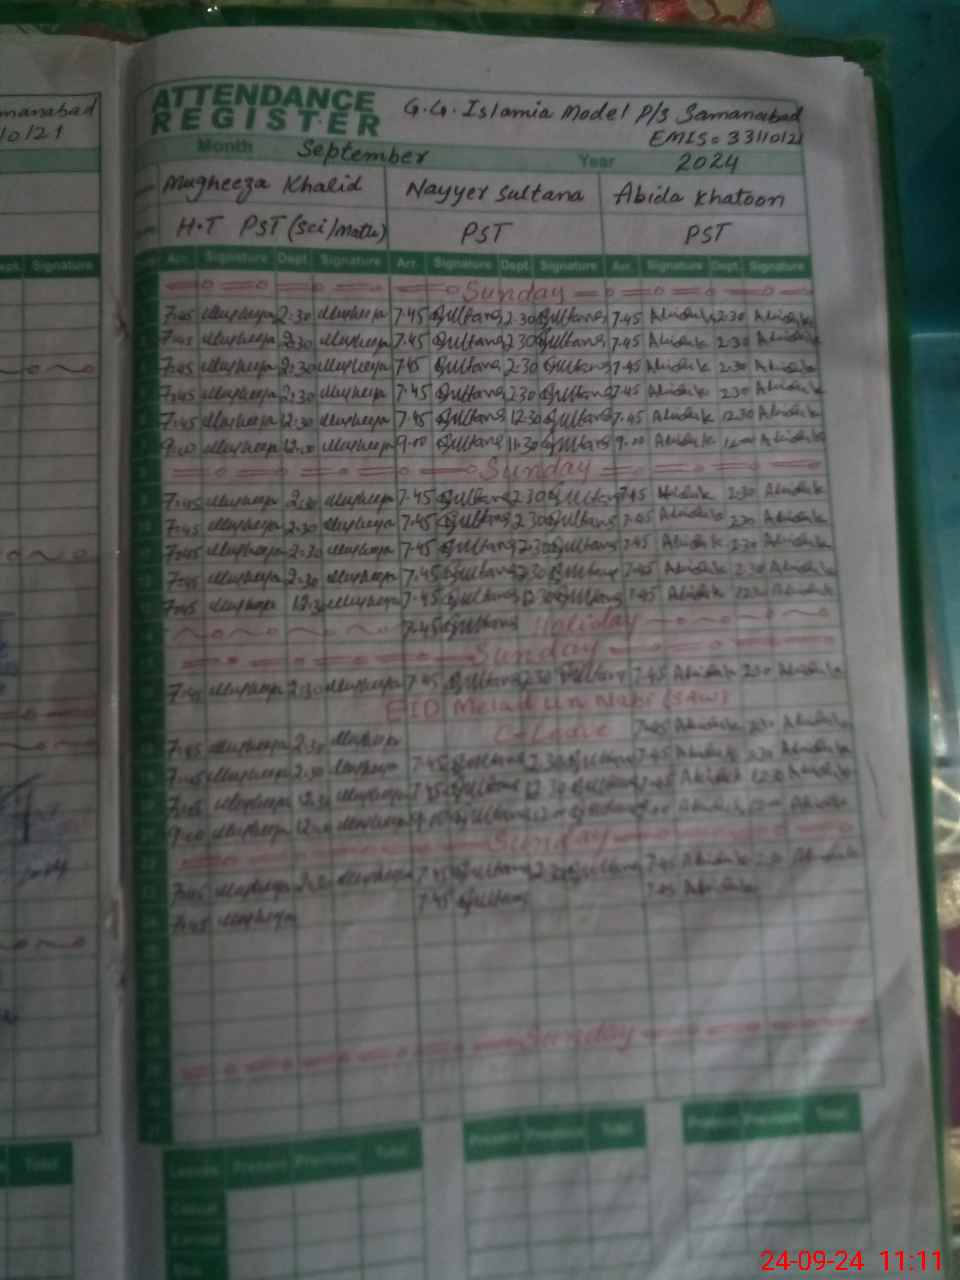 manabad
0121
ATTENDANCE
REGISTER
G.G. Islamia Model P/S Samanabad
EMIS= 33110121
Month September Year 2024
Mugheeza Khalid Nayyer Sultana Abida Khatoon
H.T PST (Sci/Math) PST PST
Signature Arr. Signature Dept. Signature Arr. Signature Dept. Signature Arr. Signature Dept. Signature
Sunday
7.45 Mugheeza 2:30 Mugheeza 7.45 Sultana 2.30 Sultana 7.45 Abida k 2:30 Abida k
7.45 Mugheeza 2:30 Mugheeza 7.45 Sultana 2.30 Sultana 7.45 Abida k 2.30 Abida k
7.45 Mugheeza 2:30 Mugheeza 7.45 Sultana 2.30 Sultana 7.45 Abida k 2.30 Abida k
7.45 Mugheeza 2:30 Mugheeza 7.45 Sultana 2.30 Sultana 7.45 Abida k 2.30 Abida k
7.45 Mugheeza 12:30 Mugheeza 7.45 Sultana 12.30 Sultana 7.45 Abida k 12.30 Abida k
9:00 Mugheeza 12:00 Mugheeza 9.00 Sultana 11.30 Sultana 9.00 Abida k 12.00 Abida k
Sunday
7.45 Mugheeza 2:30 Mugheeza 7.45 Sultana 2.30 Sultana 7.45 Abida k 2.30 Abida k
7.45 Mugheeza 2:30 Mugheeza 7.45 Sultana 2.30 Sultana 7.45 Abida k 2.30 Abida k
7.45 Mugheeza 2:30 Mugheeza 7.45 Sultana 2.30 Sultana 7.45 Abida k 2.30 Abida k
7.45 Mugheeza 2:30 Mugheeza 7.45 Sultana 2.30 Sultana 7.45 Abida k 2.30 Abida k
7.45 Mugheeza 12.30 Mugheeza 7.45 Sultana 12.30 Sultana 7.45 Abida k 12.30 Abida k
7.45 Sultana Holiday
Sunday
7.45 Mugheeza 2:30 Mugheeza 7.45 Sultana 2.30 Sultana 7.45 Abida k 2.30 Abida k
EID Melad un Nabi (SAW)
7.45 Mugheeza 2:30 Mugheeza C-Leave 7.45 Abida k 2.30 Abida k
7.45 Mugheeza 2:30 Mugheeza 7.45 Sultana 2.30 Sultana 7.45 Abida k 2.30 Abida k
7.45 Mugheeza 12.30 Mugheeza 7.45 Sultana 12.30 Sultana 7.45 Abida k 12.30 Abida k
9:00 Mugheeza 12.00 Mugheeza 9.00 Sultana 12.00 Sultana 9.00 Abida k 12.00 Abida k
Sunday
7.45 Mugheeza 2:30 Mugheeza 7.45 Sultana 2.30 Sultana 7.45 Abida k 2.30 Abida k
7.45 Mugheeza 7.45 Sultana 7.45 Abida k
Sunday
Total Leaves Present Previous Total Present Previous Total Present Previous Total
Casual
24-09-24 11:11